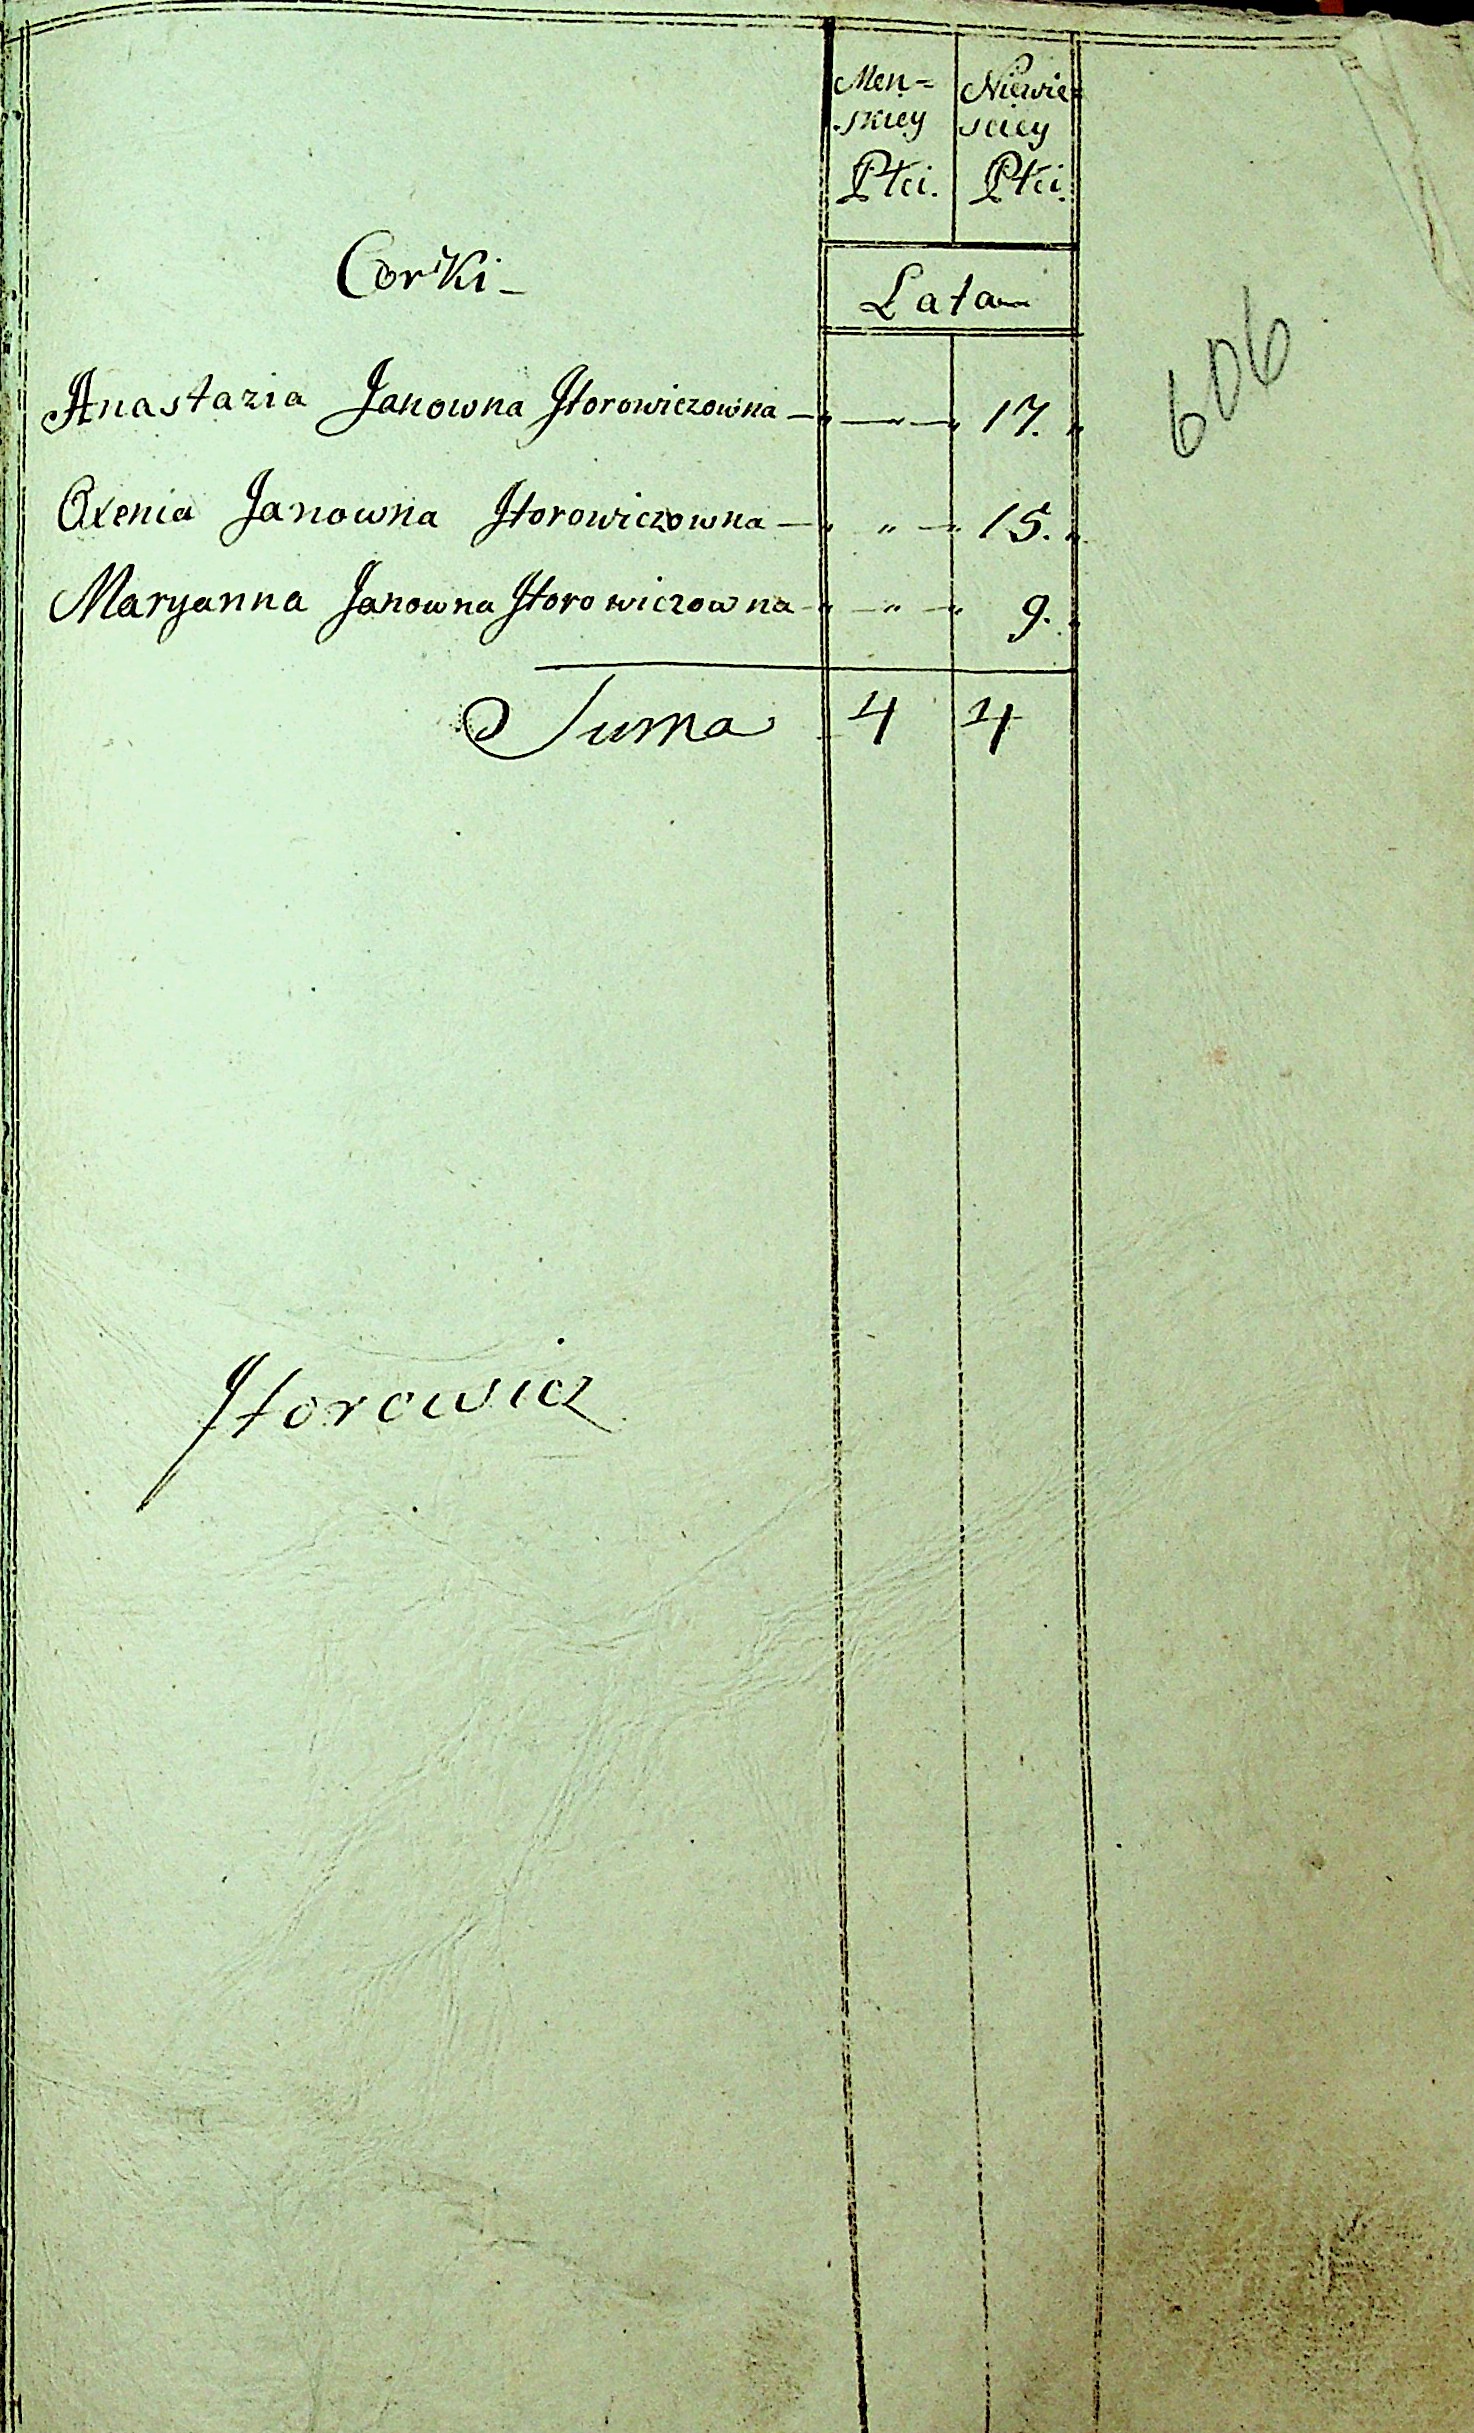 Men=
skiey
Płci.
Niewie=
sciey
Płci.
Corki -
Lata
606
Anastazia Janowna Jtorowiczowna - „ — „ — „ 17. „
Oxenia Janowna Jtorowiczowna - „ „ - „ 15. „
Maryanna Janowna Jtorowiczowna - „ - „ - „ 9. „
Suma 4 4
Jtorowicz